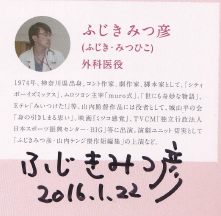 ふじきみつ彦
(ふじき・みつひこ)
外科医役
1974年、神奈川県出身。コント作家、劇作家、脚本家として、「シティ
ボーイズミックス」、ムロツヨシ主宰「muro式」、「世にも奇妙な物語」、
Eテレ「みいつけた!」等。山内勘督作品には役者として、城山羊の会
「身の引きしまる思い」、映画「ミツコ感覚」、TVCM「独立行政法人
日本スポーツ振興センター・BIG」等に出演。演劇ユニット愛実として
「ふじきみつ彦・山内ケンジ傑作短編集」の上演など。
ふじきみつ彦
2016.1.22